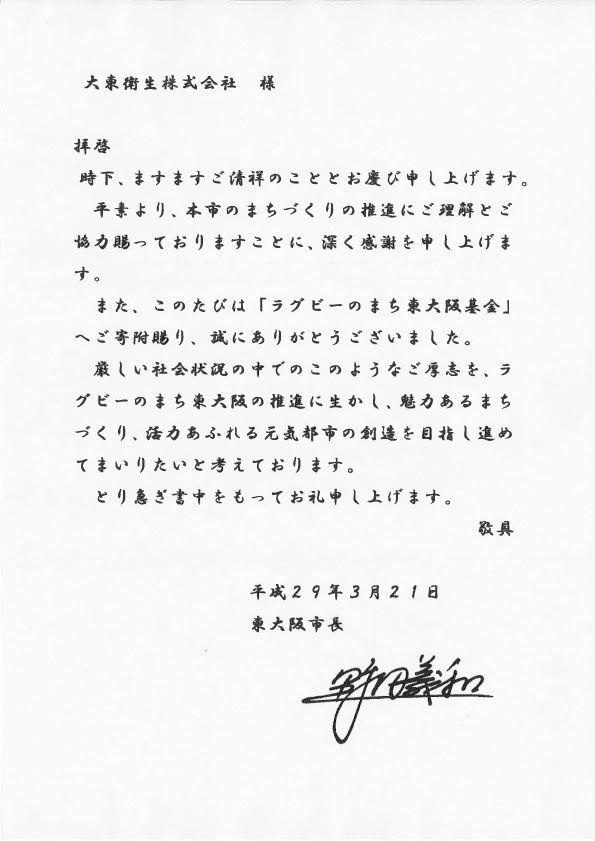 大東衛生株式会社　様
拝啓
時下、ますますご清祥のこととお慶び申し上げます。
平素より、本市のまちづくりの推進にご理解とご
協力賜っておりますことに、深く感謝を申し上げま
す。
また、このたびは「ラグビーのまち東大阪基金」
へご寄附賜り、誠にありがとうございました。
厳しい社会状況の中でのこのようなご厚志を、ラ
グビーのまち東大阪の推進に生かし、魅力あるまち
づくり、活力あふれる元気都市の創造を目指し進め
てまいりたいと考えております。
とり急ぎ書中をもってお礼申し上げます。
敬具
平成２９年３月２１日
東大阪市長
野田義和